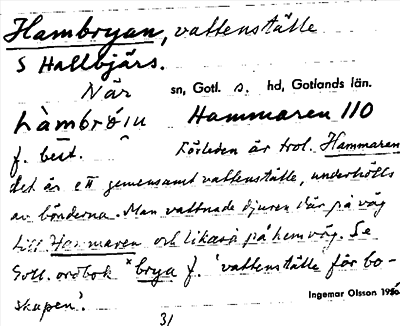 Hambryan, vattenställe
S Hallbjärs.
När sn, Gotl. s. hd, Gotlands län.
Hammaren 110
f. best. Förleden är trol. Hammaren
Det är ett gemensamt vattenställe, underhölls
av bönderna. Man vattnade djuren där på väg
till Hammaren och likaså på hemväg. Se
Gotl. ordbok *brya f. 'vattenställe för bo-
skapen'.
Ingemar Olsson
31